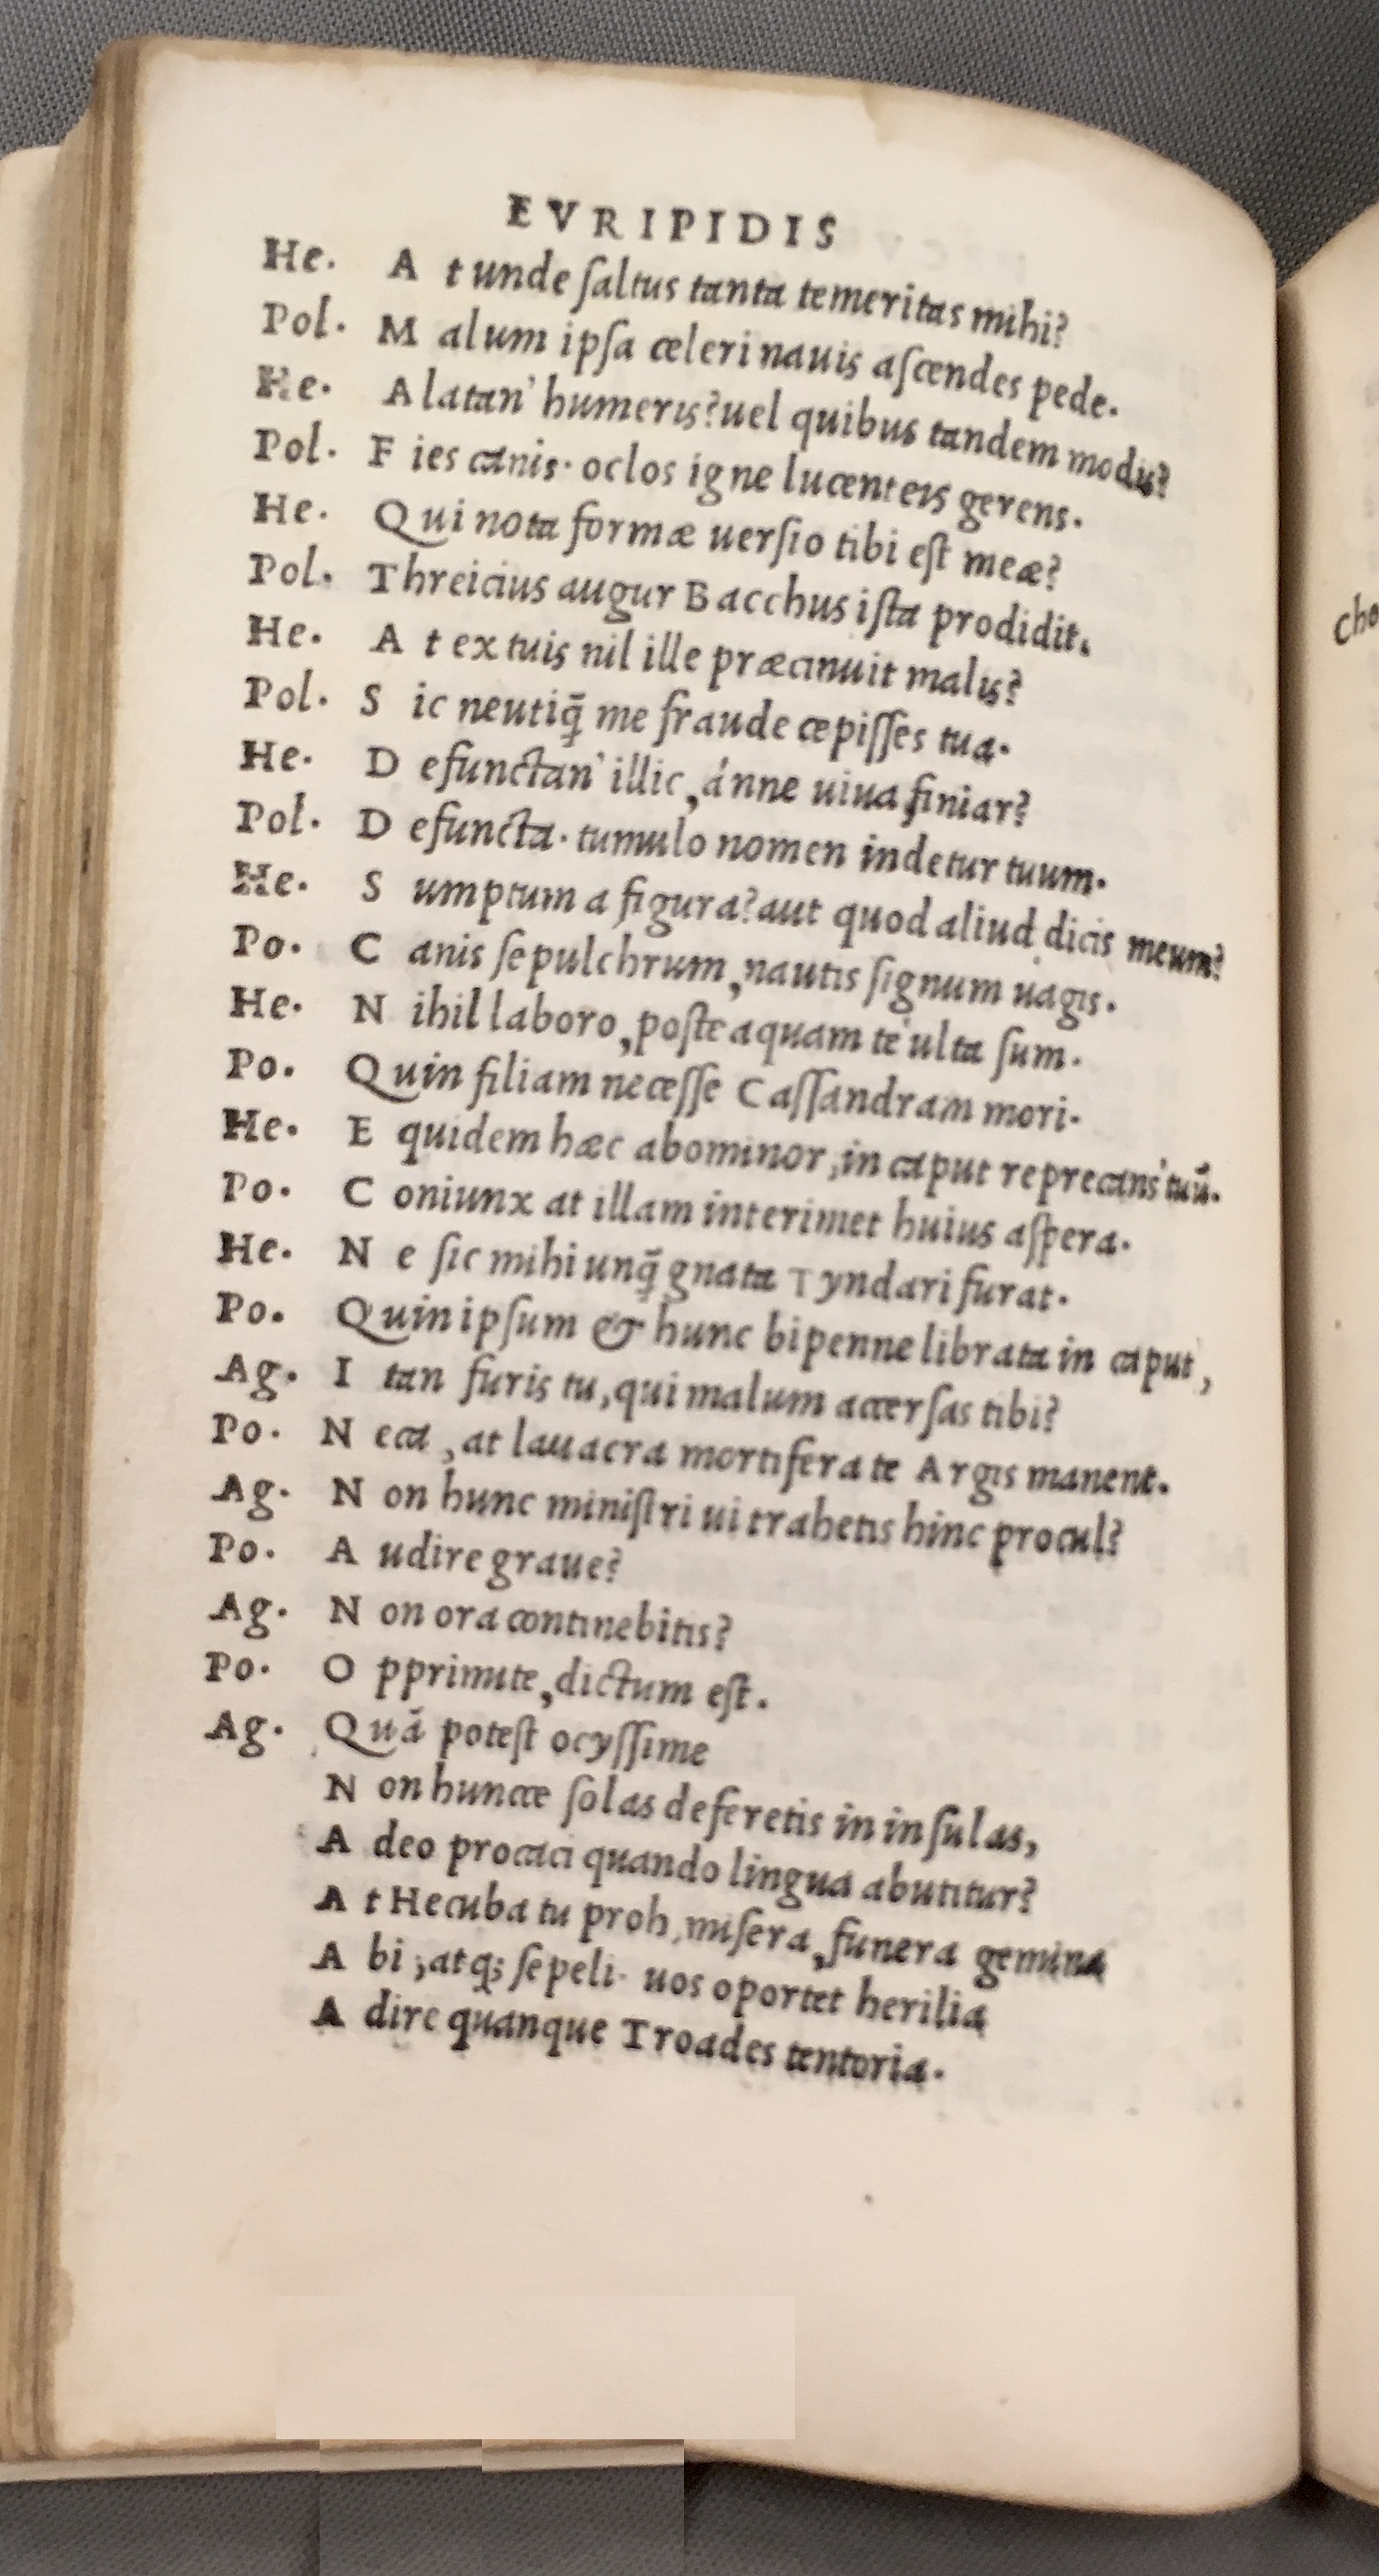 EVRIPIDIS
He. A t unde ſaltus tanta temeritas mihi?
Pol. M alum ipſa celeri nauis aſcendes pede.
He. A latan' humeris? uel quibus tandem modis?
Pol. F ies canis. oclos igne lucenteis gerens.
He. Q ui nota formæ uerſio tibi eſt meæ?
Pol. T hreicius augur Bacchus iſta prodidit.
He. A t ex tuis nil ille præcinuit malis?
Pol. S ic neutiq̃ me fraude cepiſſes tua.
He. D efunctan' illic, ánne uiua finiar?
Pol. D efuncta. tumulo nomen indetur tuum.
He. S umptum a figura? aut quod aliud dicis meum?
Po. C anis ſepulchrum, nautis ſignum uagis.
He. N ihil laboro, poſteaquam te' ulta ſum.
Po. Q uin filiam neceſſe Caſſandram mori.
He. E quidem hæc abominor, in caput reprecans' tuũ.
Po. C oniunx at illam interimet huius aſpera.
He. N e ſic mihi unq̃ gnata Tyndari furat.
Po. Q uin ipſum & hunc bipenne librata in caput,
Ag. I tan furis tu, qui malum accerſas tibi?
Po. N eca, at lauacra mortifera te Argis manent.
Ag. N on hunc miniſtri ui trahetis hinc procul?
Po. A udire graue?
Ag. N on ora continebitis?
Po. O pprimite, dictum eſt.
Ag. Q uã poteſt ocyſſime
N on huncce ſolas deferetis in inſulas,
A deo procaci quando lingua abutitur?
A t Hecuba tu proh, miſera, funera gemina
A bi, atq; ſepeli. uos oportet herilia
A dire quanque Troades tentoria.
cho